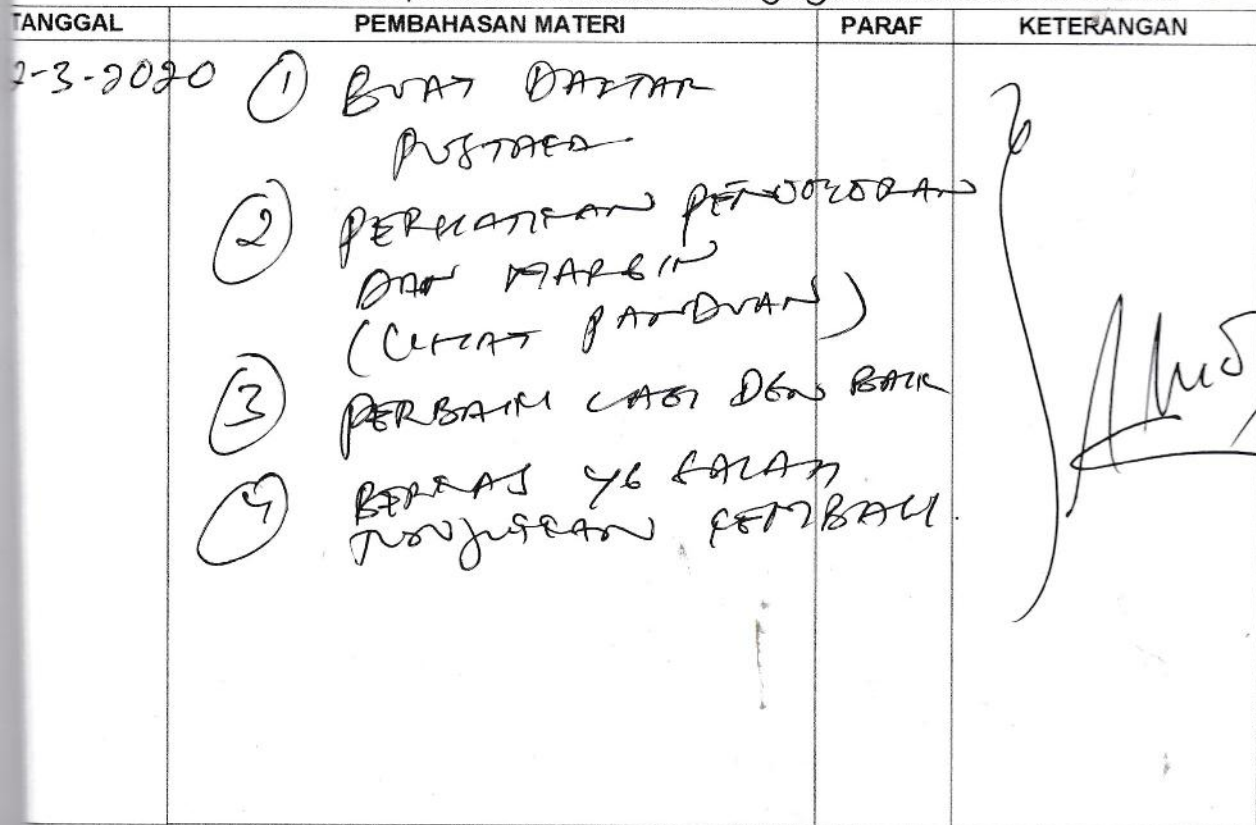 TANGGAL PEMBAHASAN MATERI PARAF KETERANGAN
2-3-2020 1 BUAT DAFTAR
PUSTAKA
2 PERHATIKAN PENOMORAN
DAN MARGIN
(LIHAT PANDUAN)
3 PERBAIKI LAGI DGN BAIK
4 BERKAS YG SALAH
TUNJUKKAN KEMBALI.